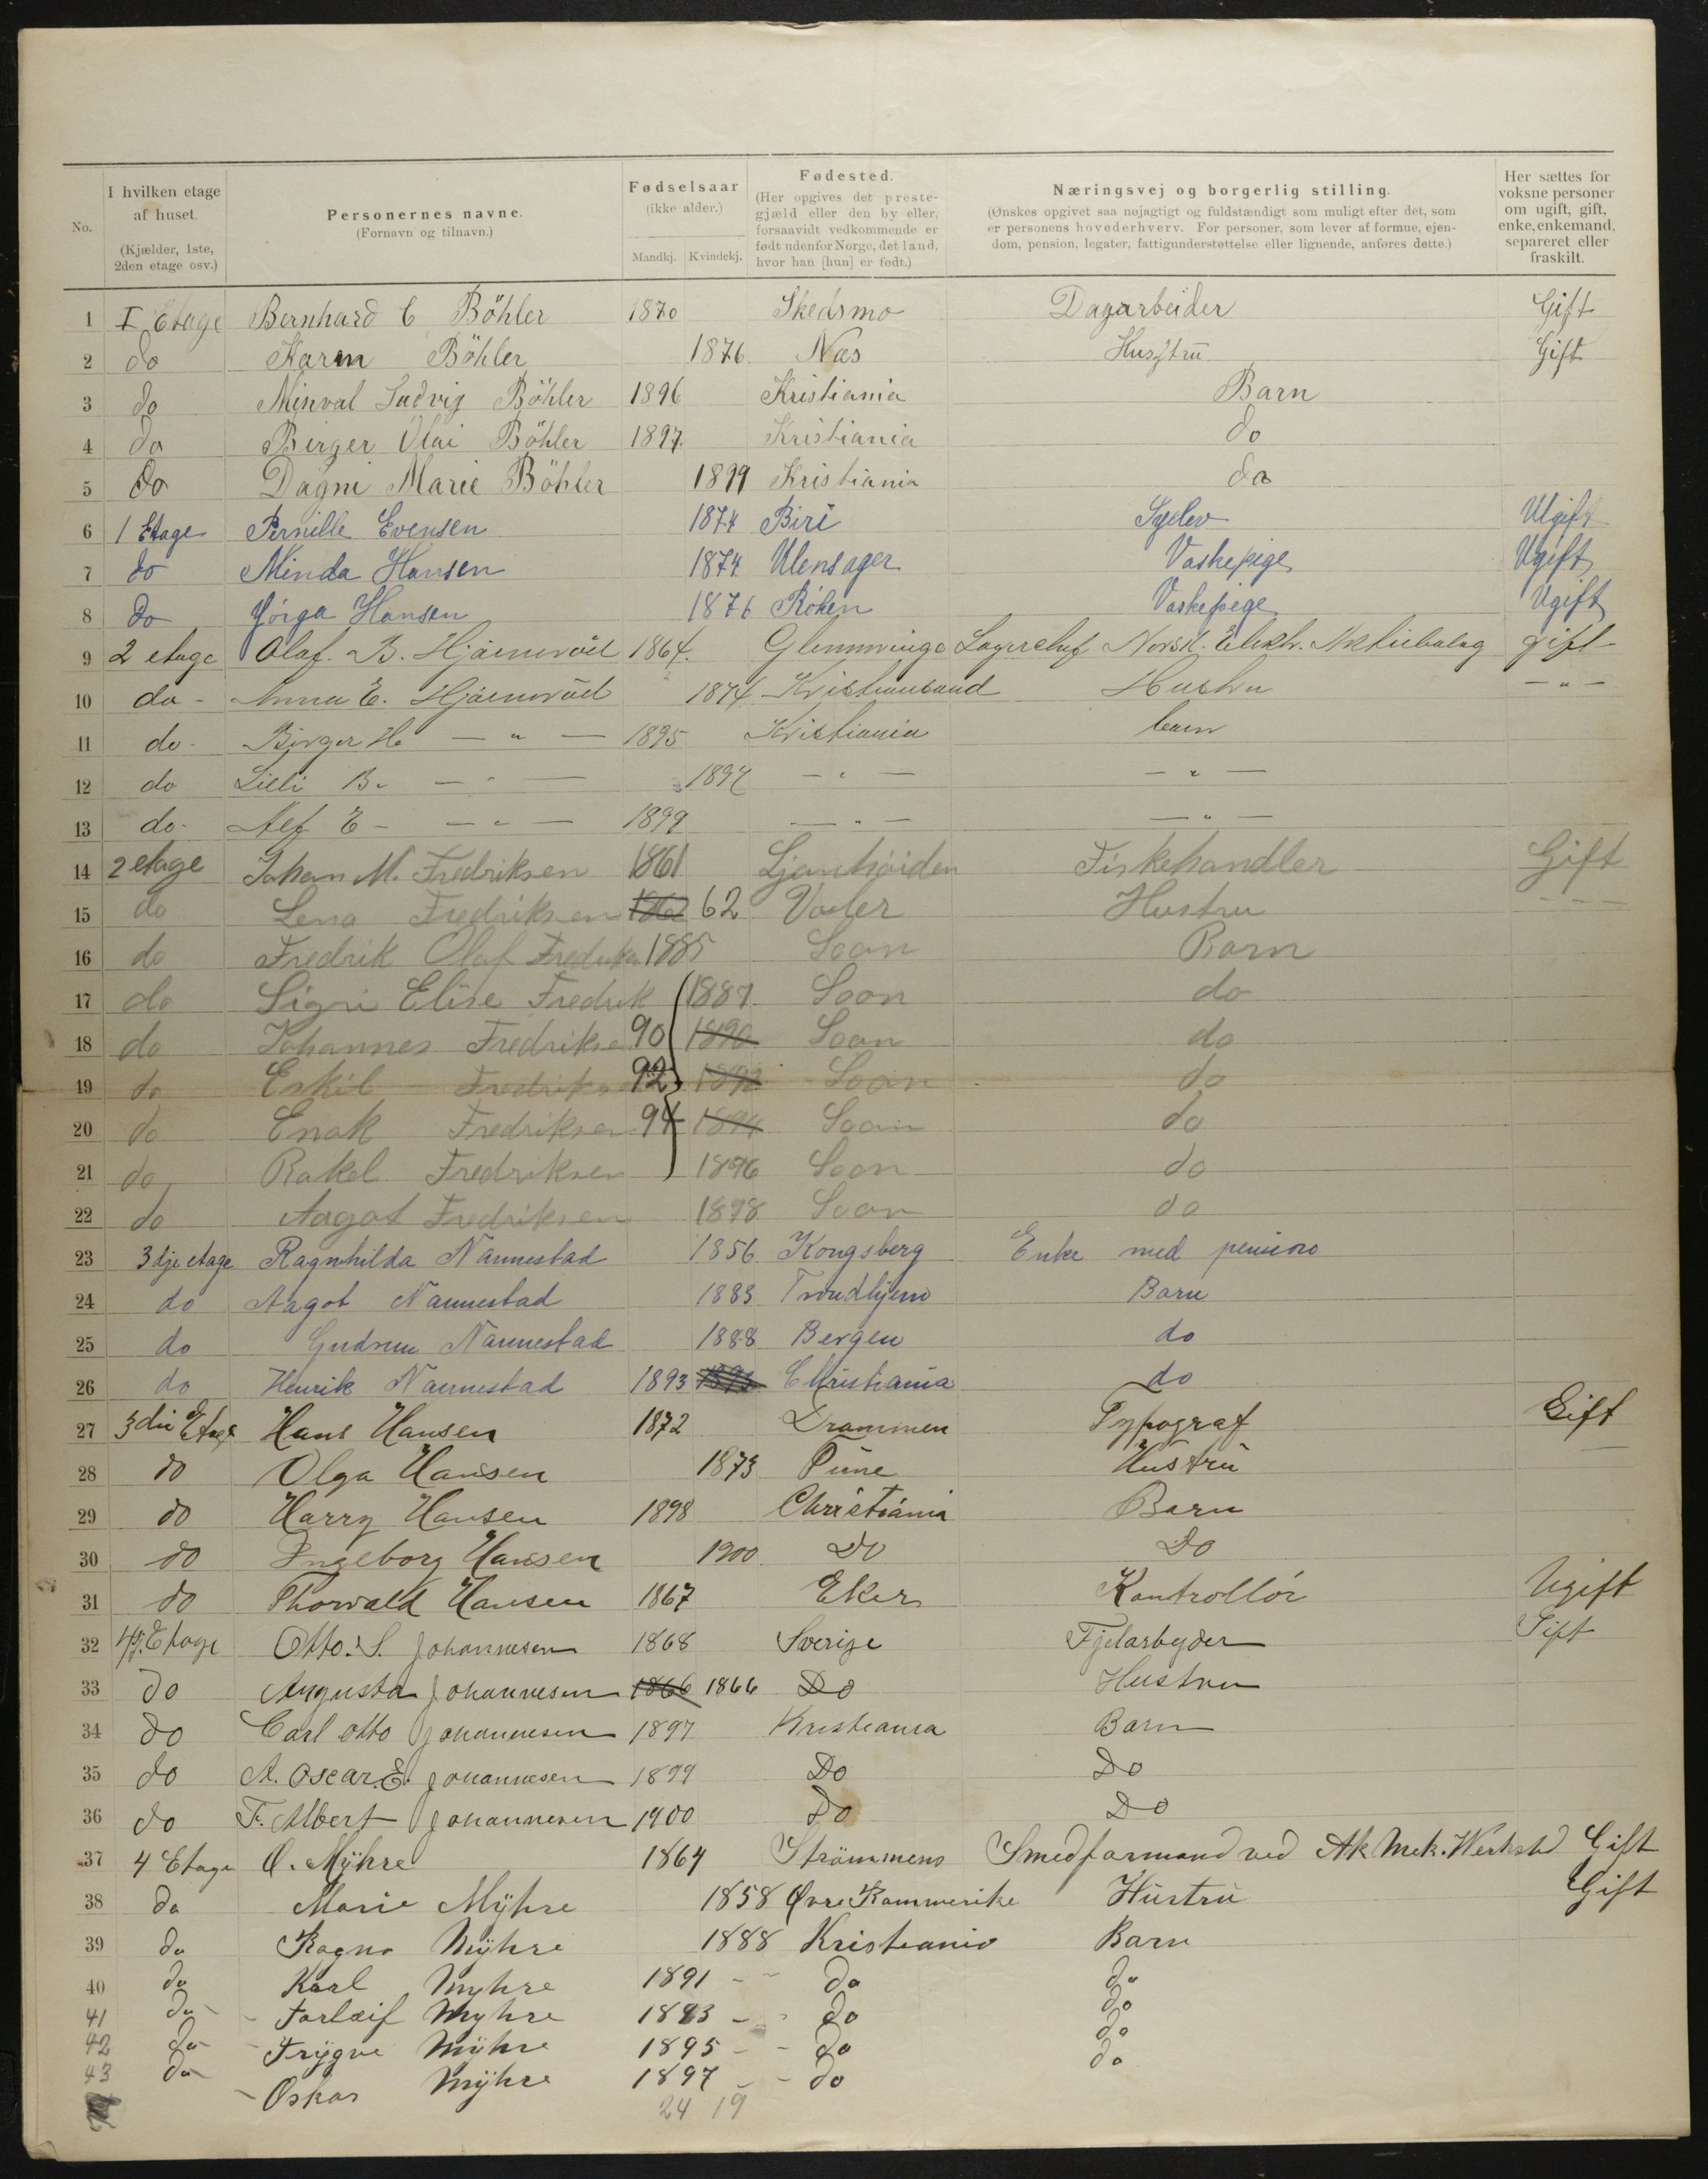 No. I hvilken etage af huset. (Kjælder, 1ste, 2den etage osv.) Personernes navne. (Fornavn og tilnavn.) Fødselsaar (ikke alder.) Mandkj. Kvindekj. Fødested. (Her opgives det prestegjæld eller den by eller, forsaavidt vedkommende er født udenfor Norge, det land, hvor han [hun] er født.) Næringsvej og borgerlig stilling. (Ønskes opgivet saa nøjagtigt og fuldstændigt som muligt efter det, som er personens hovederhverv. For personer, som lever af formue, ejendom, pension, legater, fattigunderstøttelse eller lignende, anføres dette.) Her sættes for voksne personer om ugift, gift, enke, enkemand, separeret eller fraskilt.
1 I Etage Bernhard C Böhler 1870 Skedsmo Dagarbeider Gift
2 do Karen Böhler 1876 Næs Husstrü Gift
3 do Minval Ludvig Böhler 1896 Kristiania Barn
4 do Birger Olai Böhler 1897 Kristiania do
5 do Dagni Marie Böhler 1899 Kristiania do
6 1 Etage Pernille Evensen 1874 Biri Syelev Ugift
7 do Minda Hansen 1874 Ulensager Vaskepige Ugift
8 do Jörga Hansen 1876 Röken Vaskepige Ugift
9 2 etage Olaf. B. 1864. Glemminge Lagerchef Norsk. Elektr. Aktiebolag gift
10 do Anna E. 1874 Kristiansand Hustru — " —
11 do Birger H. — " — 1895 Kristiania barn
12 do Lilli B. — " — 1897 — " — — " —
13 do Alf E — " — 1899 — " — — " —
14 2 etage Johan M. Fredriksen 1861 Ljanhöiden Fiskehandler Gift
15 do Lena Fredriksen 1862 62 Vaaler Hustru - - -
16 do Fredrik Olaf Fredriksen 1885 Soon Barn
17 do Signi Elise Fredrik 1887 Soon do
18 do Johannes Fredriksen 90 1890 Soon do
19 do Eskil Fredriksen 92 1892 Soon do
20 do Enok Fredriksen 94 1894 Soon do
21 do Rakel Fredriksen 1896 Soon do
22 do Aagot Fredriksen 1898 Soon do
23 3dje etage Ragnhilda Nannestad 1856 Kongsberg Enke med pension
24 do Aagot Nannestad 1883 Trondhjem Barn
25 do Gudrun Nannestad 1888 Bergen do
26 do Henrik Nannestad 1893 Christiania do
27 3die Etage Hans Hansen 1872 Drammen Typograf Gift
28 do Olga Hansen 1873 Hustrü
29 do Harry Hansen 1898 Christiania Barn
30 do Ingeborg Hansen 1900 Do Do
31 do Thorvald Hansen 1867 Eker Kontrollör Ugift
32 4j. Etage Otto. S. Johannesen 1868 Sverige Fjelarbyder Gift
33 do Augusta Johannesen 1866 1866 Do Hustru
34 do Carl Otto Johannesen 1897 Kristiania Barn
35 do A. Oscar. E. Johannesen 1899 Do Do
36 do F. Albert Johannesen 1900 Do Do
37 4 Etage O. Mÿhre 1864 Strömmens Smedformand ved Ak Mek. Werksted Gift
38 do Marie Mÿhre 1858 Øvre Rommerike Hüstrü Gift
39 do Ragna Mÿhre 1888 Kristiania Barn
40 do Karl Myhre 1891 - - do do
41 do Torleif Myhre 1893 - - do do
42 do Trÿgve Mÿhre 1895 - - do do
43 do Oskar Mÿhre 1897 - - do do
24 19